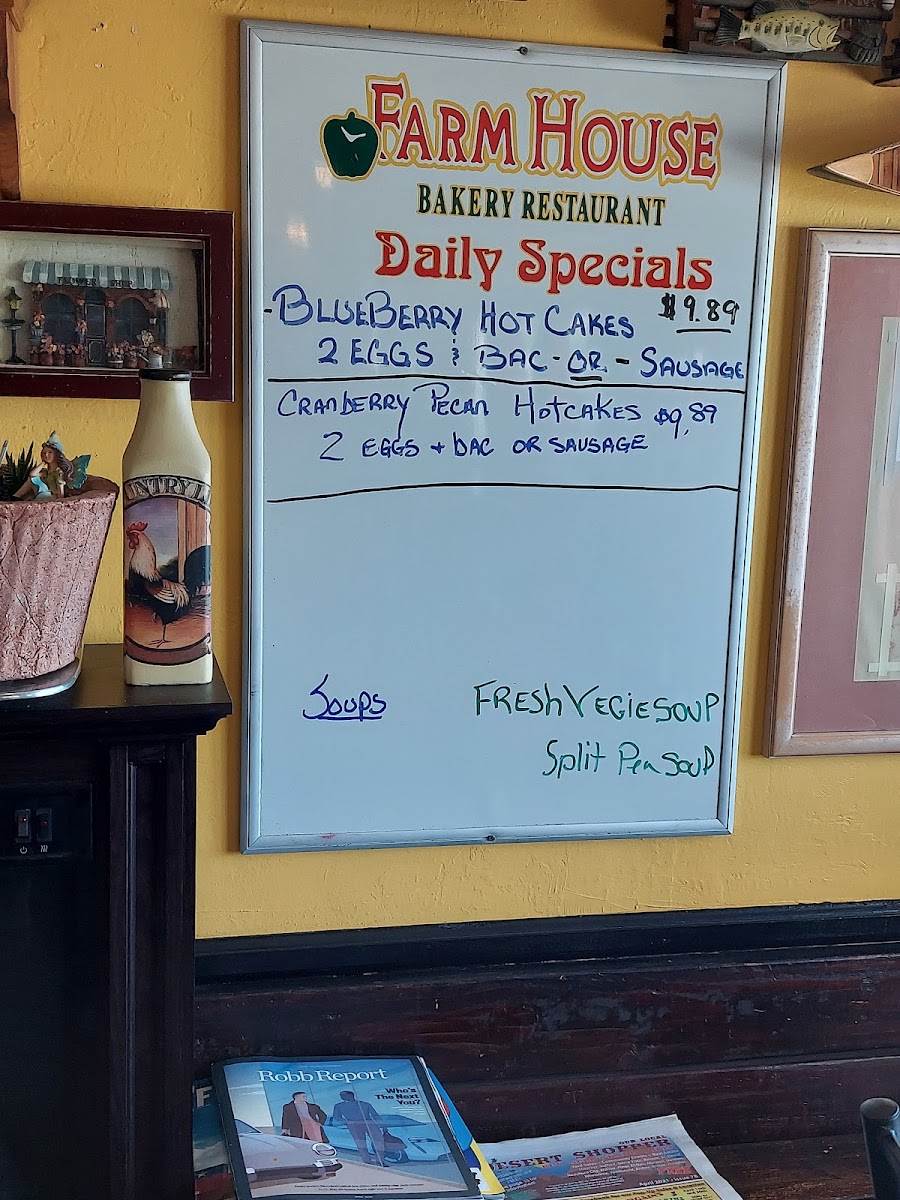 FARM HOUSE
BAKERY RESTAURANT
Daily Specials
-BLUEBERRY HOT CAKES $9.89
2 EGGS & BAC-OR-SAUSAGE
CRANBERRY PECAN HOTCAKES $9.89
2 EGGS + BAC OR SAUSAGE
SOUPS
FRESH VEGIE SOUP
Split Pea SOUP
FLOWER SHOP
UNTRY L
Robb Report
Who's
The Next
You?
OUR LOCAL
DESERT SHOPPER
April 2021 • Issue